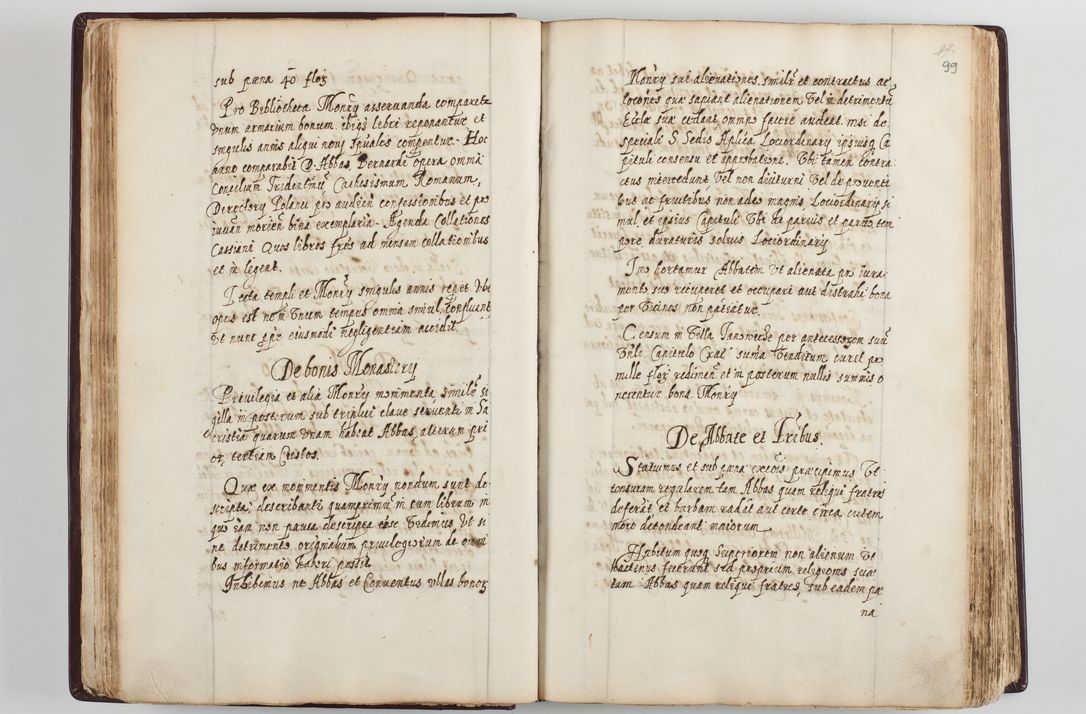 sub pæna 40 floꝝ
Pro Bibliotheca Monrÿ asseruanda comparet
vnum armarium bonum, libri reponantur et
singulis annis aliqui noui spũales compentur. Hoc
anno comparabit D. Abbas Bernardi opera omnia
Concilium Tridentinũ Cathesismum Romanum,
Directorÿ Polanci pro audien̄ confessionibus et pro
iuuan̄ morien̄ bina exemplaria. Agenda Collationes
Cassiani Quos libros frẽs ad mensam collationibus
et in legent.
Tecta templi et Monrÿ singulis annis repet vbi
opus est non vnum tempus omnia simul confluant
vt nunc negligentiam accidit.
De bonis Monasterÿ
Priuilegia et alia Monrÿ monimenta, similr̃ si
gilla in posterum sub triplici clave seruent in Sa
cristia quarum vnam habeat Abbas, alteram pri
or, tertiam Custos.
Quæ ex monimentis Monrÿ nondum sunt de
scripta, describant quamprimũ in eum librum in
quo iam non pauca descripta esse vidimus vt si
ne detrimento originalium priuilegiorum de omni
bus informatio haberi possit
Inhibemus ne Abbas et Conuentus vllas bonoꝝ
99
Monrÿ sui alienationes, similr̃ et contractus ac
locones quæ sapiant alienationem vel in detrimentũ
Ecclæ suæ cedant omnino facere audeat. nisi de
speciali S. Sedis Aplicæ Lociordinarÿ ipsiusq Ca
pituli consensu et approbatione. Vbi tamen contra
ctus intercedunt vel non diuturni vel de prouenti
bus ac fructibus non adeo magnis, Lociordinarÿ si
mul et ipsius Capituli Vbi de paruis et paruo tem
pore duraturis solius Lociordinarÿ
Imo hortamur Abbatem vt alienata pro iura
mento suo recuperet et occupari aut distrahi bona
per vicinos non patiatur.
Censum in villa Janowiche per antecessorem suũ
Vnli Capitulo Crac̃ suma venditum curet pro
mille floꝝ redimen̄ et in posterum nullis summis o
nerentur bona Monrÿ
De Abbate et Fr̃ibus.
Statuimus et sub pæna excois præcipimus Vt
tonsuram regularem tam Abbas quam reliqui fratres
deferāt et barbam radāt aut certe circa cutem
more detondeant maiorum
Habitum quoq Superiorem non alienum vt
hactenus fecerunt sed proprium religionis suæ
tam Abbas quam reliqui fratres, sub eadem pæ
na